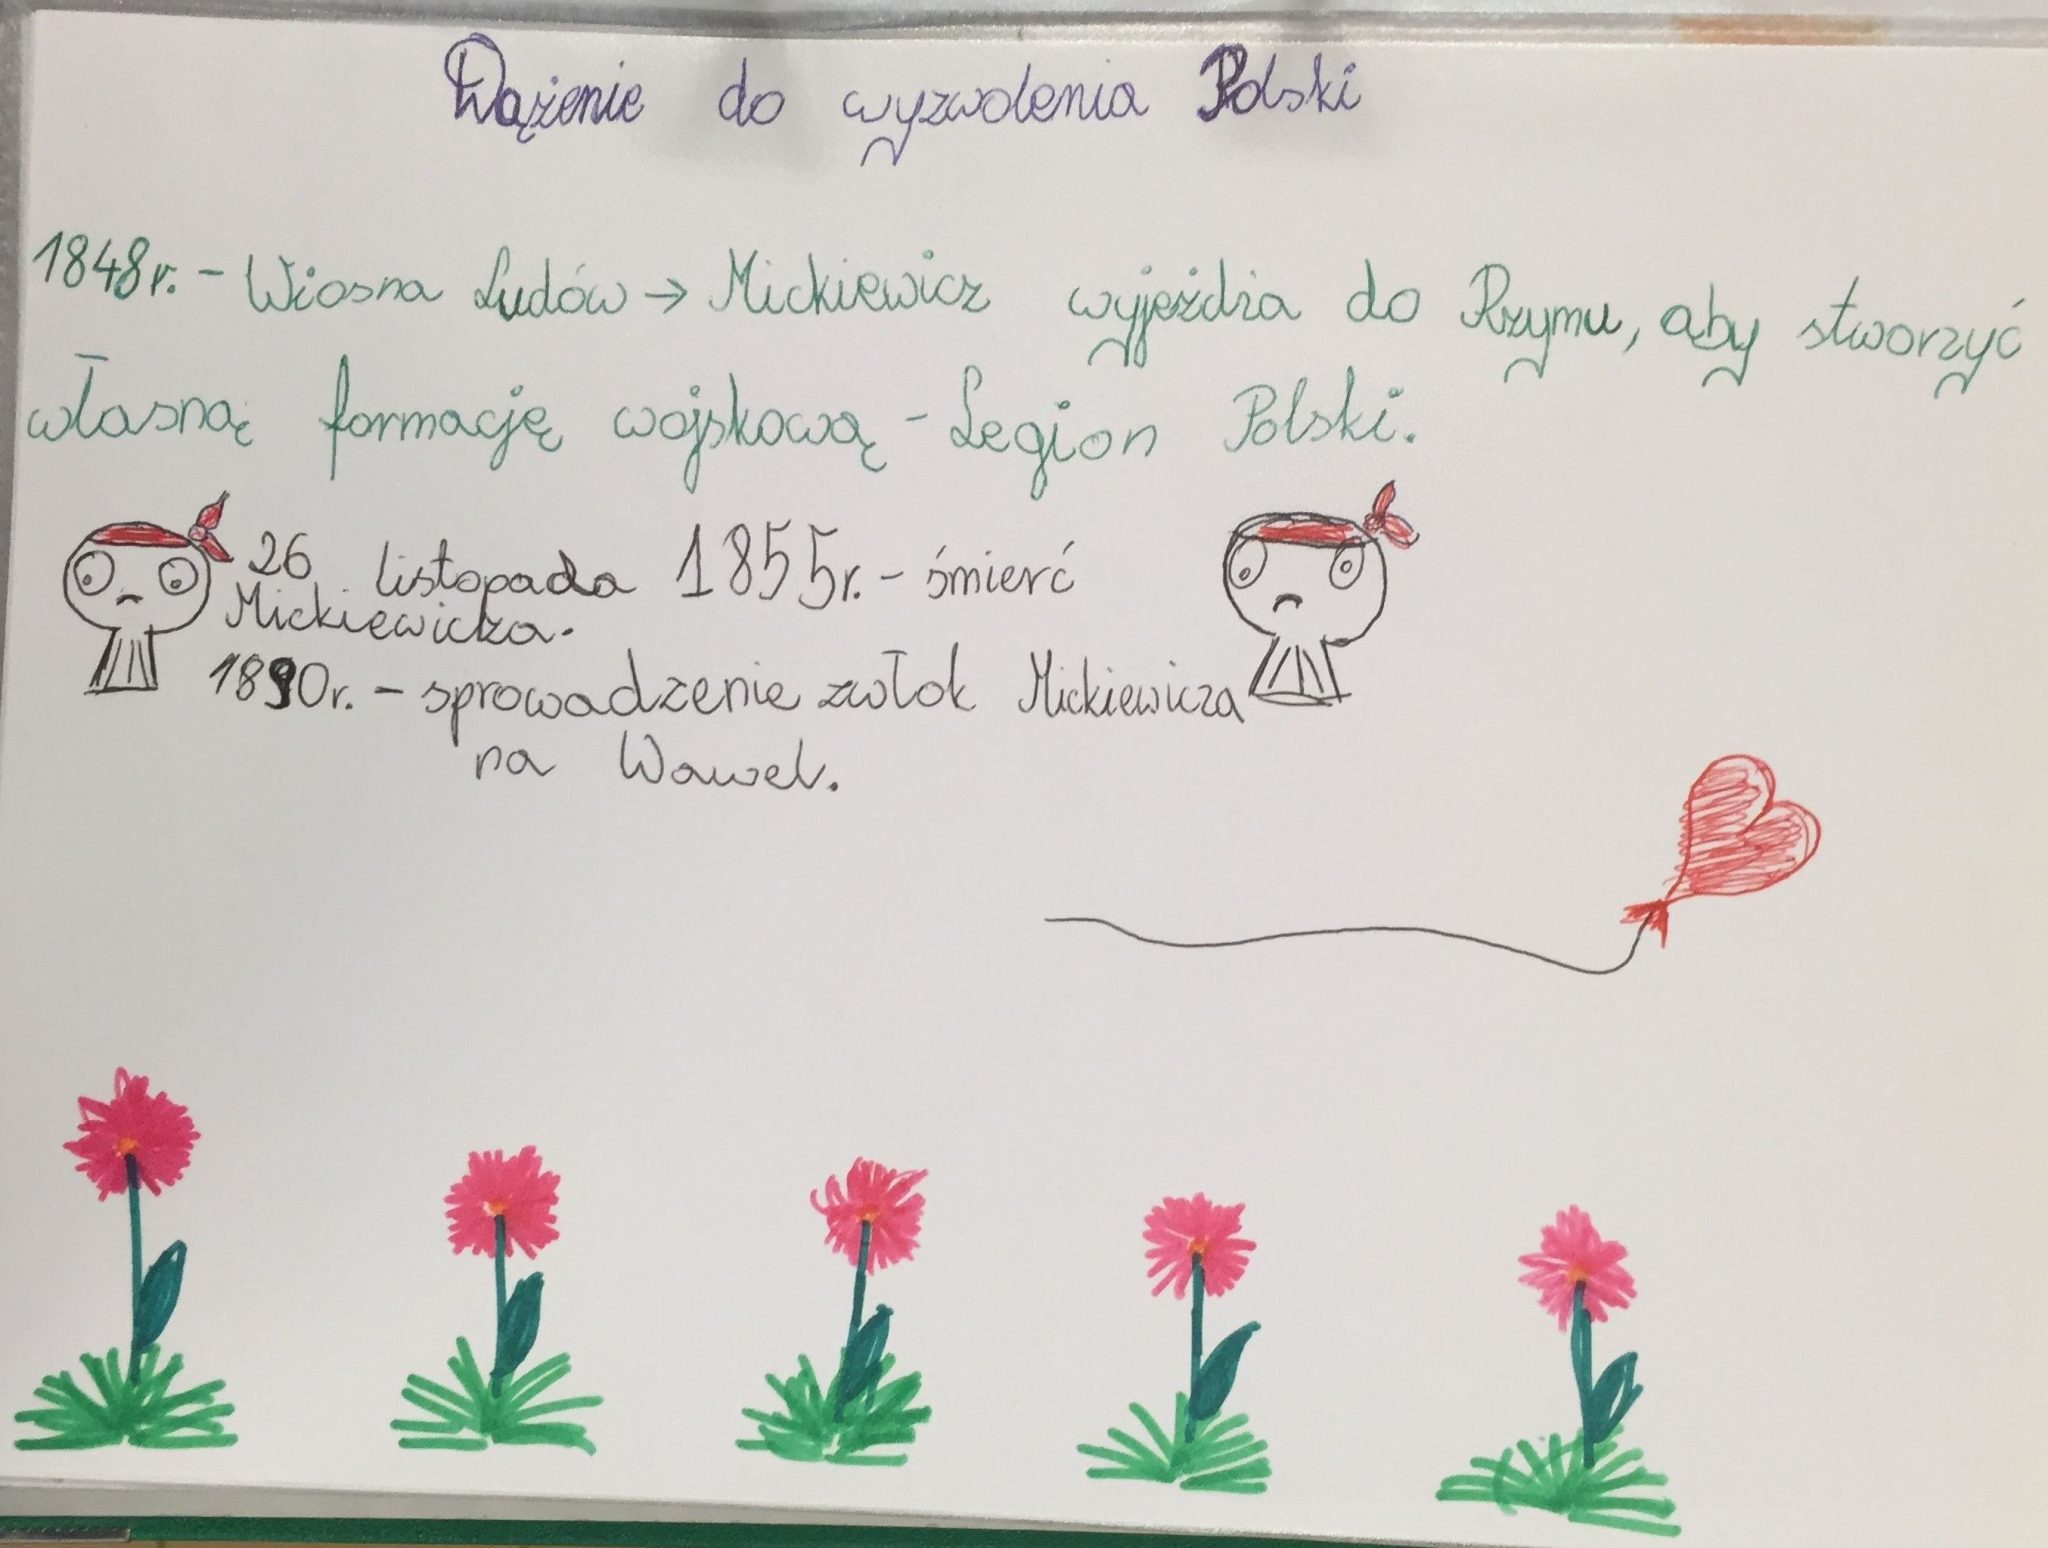 Dążenie do wyzwolenia Polski
1848r. - Wiosna Ludów → Mickiewicz wyjeżdża do Rzymu, aby stworzyć
własną formację wojskową - Legion Polski.
26 listopada 1855r. - śmierć
Mickiewicza.
1890r. - sprowadzenie zwłok Mickiewicza
na Wawel.